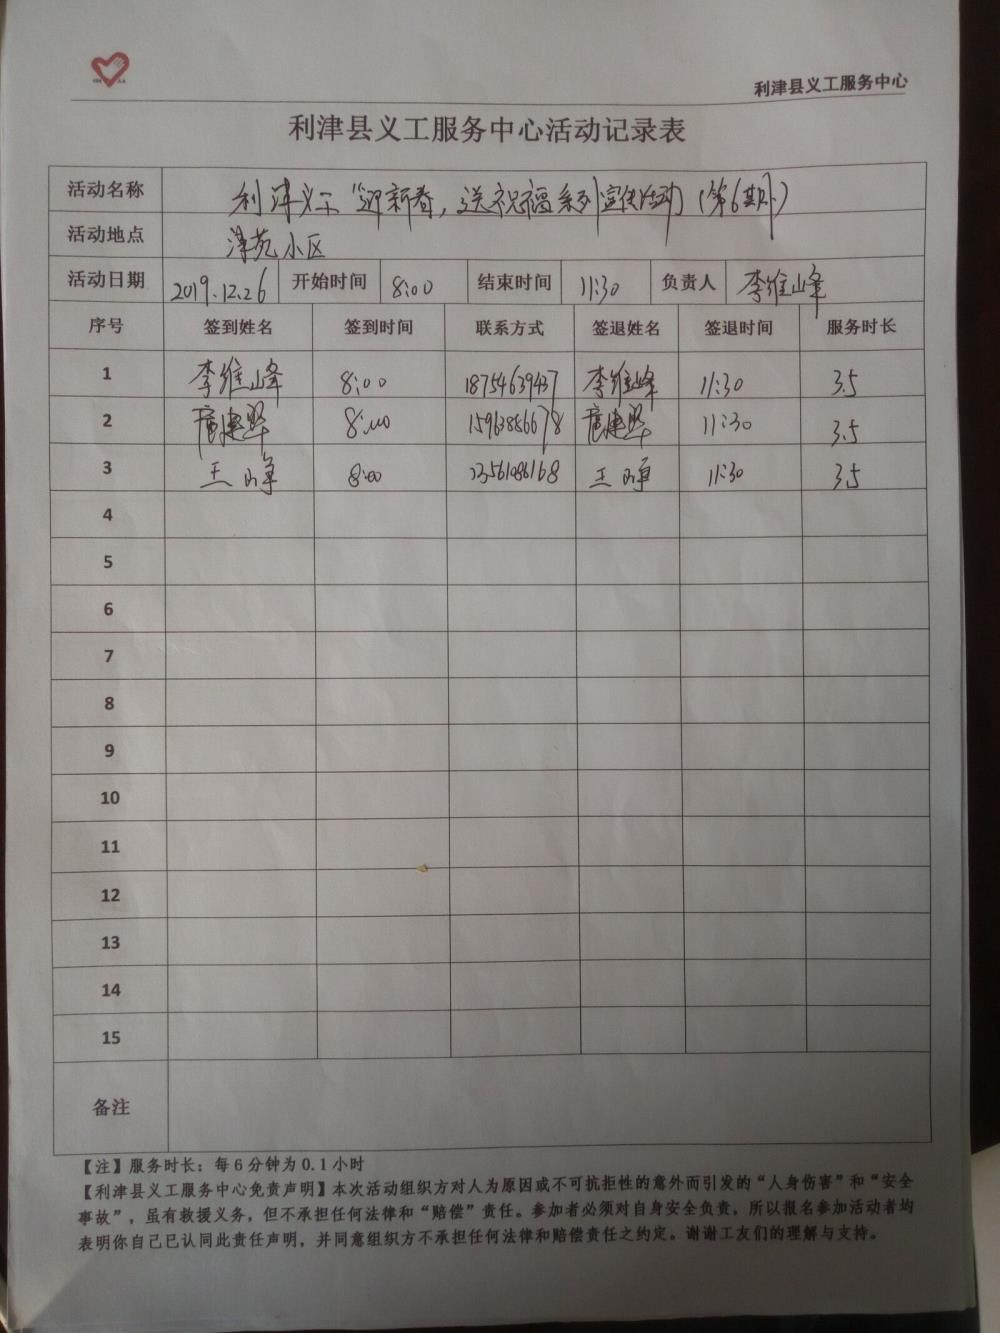 利津县义工服务中心
利津县义工服务中心活动记录表
活动名称 利津义工“迎新春，送祝福系列宣传活动（第6期）
活动地点 津苑小区
活动日期 2019.12.26 开始时间 8:00 结束时间 11:30 负责人 李维峰
序号 签到姓名 签到时间 联系方式 签退姓名 签退时间 服务时长
1 李维峰 8:00 18754639437 李维峰 11:30 3.5
2 8:00 15963886678 11:30 3.5
3 王峥 8:00 13561086168 王峥 11:30 3.5
4
5
6
7
8
9
10
11
12
13
14
15
备注
【注】服务时长：每6分钟为0.1小时
【利津县义工服务中心免责声明】本次活动组织方对人为原因或不可抗拒性的意外而引发的“人身伤害”和“安全
事故”，虽有救援义务，但不承担任何法律和“赔偿”责任。参加者必须对自身安全负责，所以报名参加活动者均
表明你自己已认同此责任声明，并同意组织方不承担任何法律和赔偿责任之约定。谢谢工友们的理解与支持。